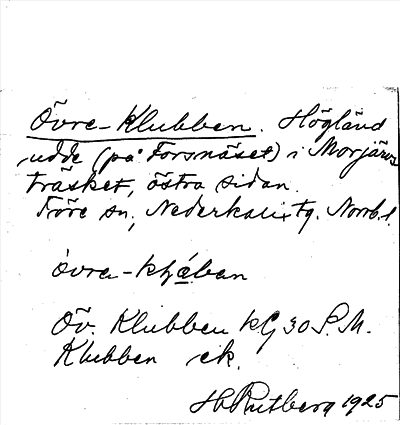 Övre-Klubben. Högländ
udde (på Forsnäset) i Morjärvs
träsket, östra sidan.
Töre sn, Nederkalix tg. Norrb. l.
Öv. Klubben kC, 30 S.M.
Klubben ek.
H Rutberg 1925